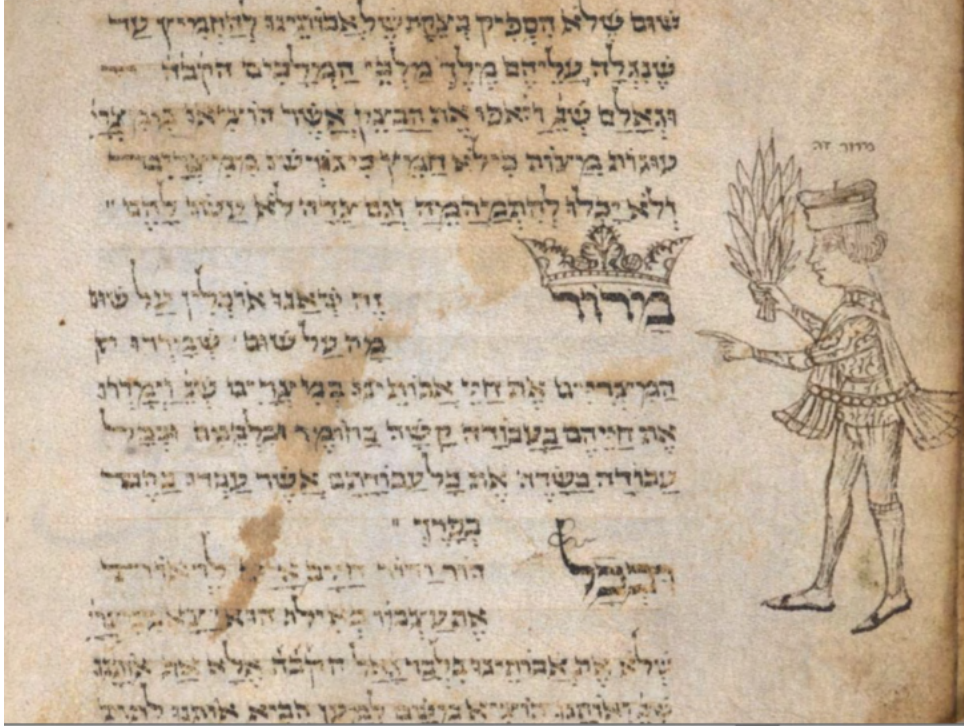 שום שלא הספיק בצקת של אבותינו להחמיץ עד
שנגלה עליהם מלך מלכי המלכים הקבה
וגאלם שנ ויאפו את הבצק אשר הוציאו ממצרי
עוגות מצות כי לא חמץ כי גורשו ממצרים
ולא יכלו להתמהמה וגם צדה לא עשו להם
מרור זה
מרור זה שאנו אוכלין על שום
מה על שום שמררו
המצריים את חיי אבותינו במצרים שנ וימררו
את חייהם בעבודה קשה בחומר ובלבנים ובכל
עבודה בשדה את כל עבודתם אשר עבדו בהם
בפרך
בכל דור ודור חייב אדם
את עצמו כאילו הוא יצא ממצרי
שלא את אבותינו בלבד גאל הקבה אלא אף אותנו
שנ ואותנו הוציא משם למען הביא אותנו